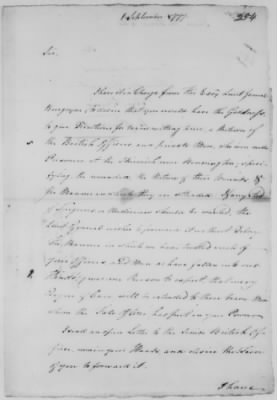 1 September 1777
Sir,
I have it in Charge from the Exy. Lieut General
Burgoyne, to desire that you would have the Goodness
to give Directions for transmitting here, a Return of
the British Officers and private Men, who are made
Prisoners at the Bennington, speci-
fying the wounded, the Nature of their Wounds &
the Manner in which they are attended. If any
of Surgeons or Medicines should be wanted, the
Lieut General wishes to procure it without Delay.
The Manner in which we have treated such of
your Officers and Men as have fallen into our
Hands, gives me Reason to expect that every
Degree of Care will be extended to those brave Men
whom the late Affair has put in your Power.
I send an open Letter to the Senior British Of-
ficer, now in your Hands, and desire the Favor
of you to forward it.
I have